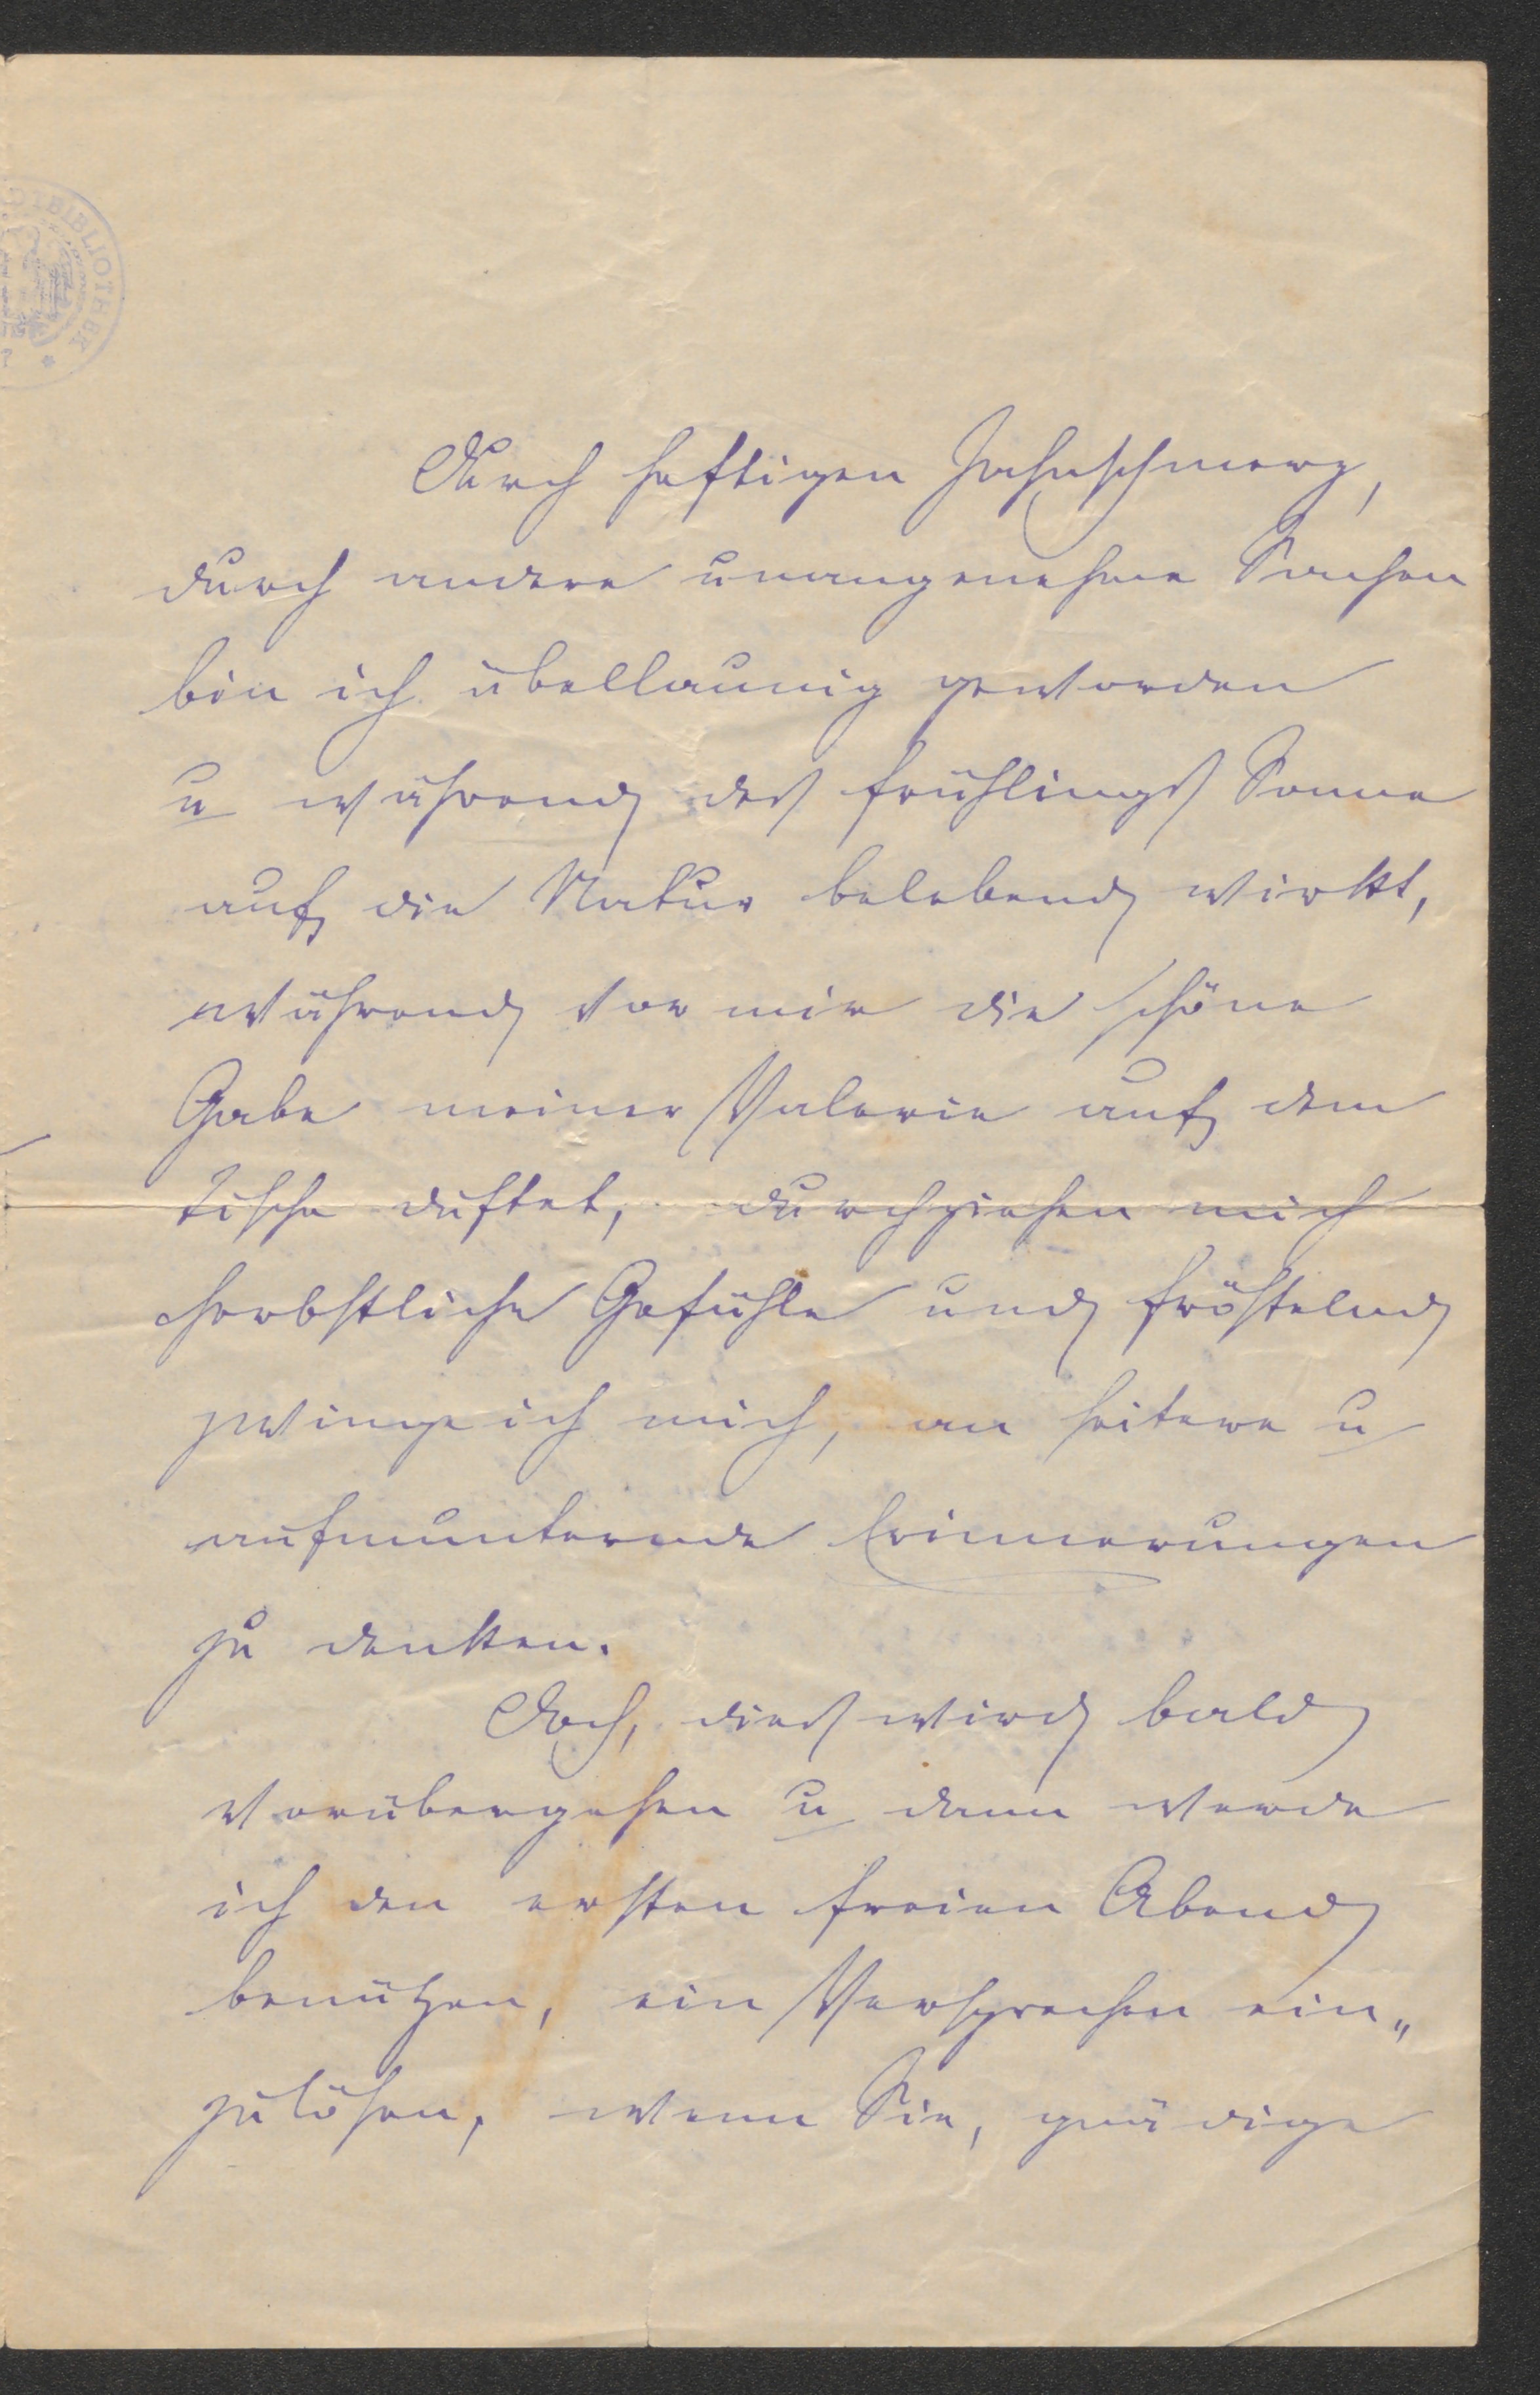 DTBIBLIOTHEK
Durch heftigen Zahnschmerz,
durch andere unangenehme Sachen
bin ich übellaunig geworden
u während des Frühlings Sonne
auf die Natur belebend wirkt,
während vor mir die schöne
Gabe meiner Valerie auf dem
Tische duftet, durchziehen mich
herbstliche Gefühle und fröstelnd
zwinge ich mich, an heitere u
aufmunternde Erinnerungen
zu denken.
Doch, dies wird bald
vorübergehen u dann werde
ich den ersten freien Abend
benützen, ein Versprechen ein„
zulösen, wenn Sie, gnädige